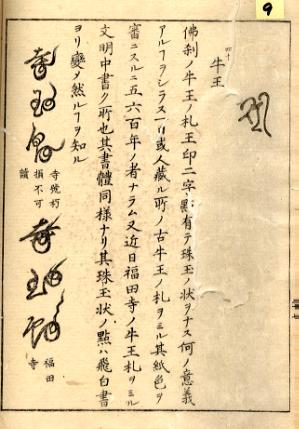 9
四十
牛王
佛刹ノ牛王ノ札王印二字ニ點有テ珠玉ノ状ヲナス何ノ意義
アルヿヲシラス一日或人藏ル所ノ古牛王ノ札ヲミル其紙色ヲ
審ニスルニ五六百年ノ者ナラム又近日福田寺ノ牛王札ヲミル
文明中書ク所也其書體同樣ナリ其珠玉状ノ點ハ飛白書
ヨリ變メ然ルヿヲ知ル
寺號朽
損不可
讀
福田
寺